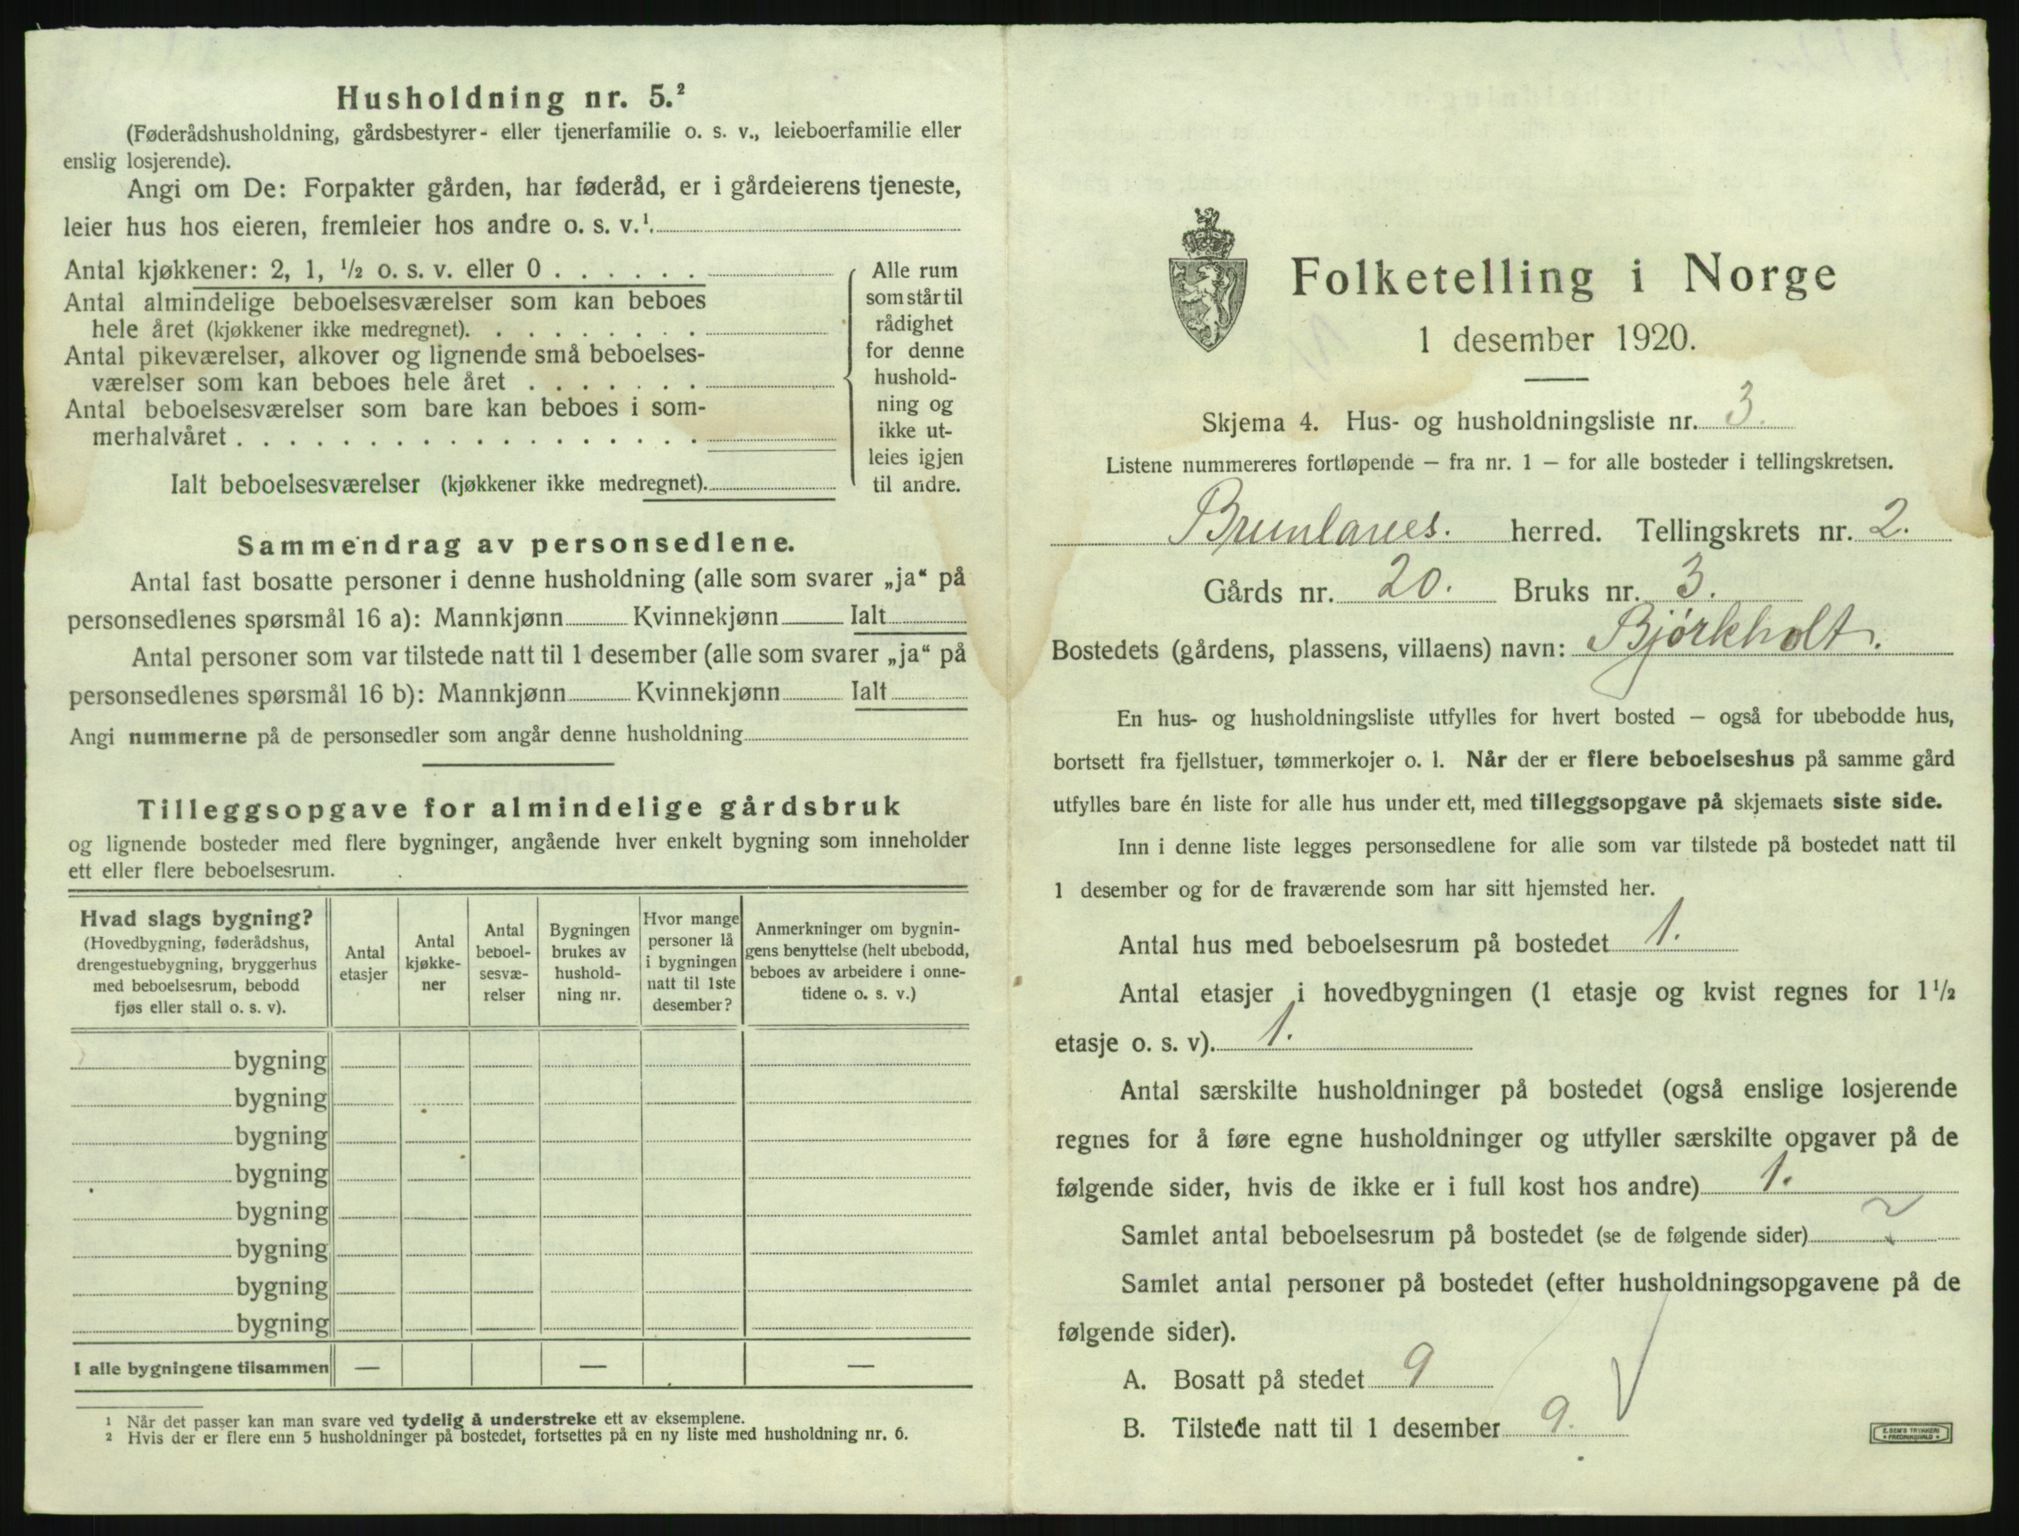 Husholdning nr. 5.²
(Føderådshusholdning, gårdsbestyrer- eller tjenerfamilie o. s. v., leieboerfamilie eller
enslig losjerende).
Angi om De: Forpakter gården, har føderåd, er i gårdeierens tjeneste,
leier hus hos eieren, fremleier hos andre o. s. v.¹.
Antal kjøkkener: 2, 1, ½ o. s. v. eller 0 . . . . . .
Antal almindelige beboelsesværelser som kan beboes
hele året (kjøkkener ikke medregnet). . . . . . . . .
Antal pikeværelser, alkover og lignende små beboelses-
værelser som kan beboes hele året . . . . . . .
Antal beboelsesværelser som bare kan beboes i som-
merhalvåret . . . . . . . . . . . . . . . . . .
Ialt beboelsesværelser (kjøkkener ikke medregnet).
Alle rum
som står til
rådighet
for denne
hushold-
ning og
ikke ut-
leies igjen
til andre.
Sammendrag av personsedlene.
Antal fast bosatte personer i denne husholdning (alle som svarer „ja“ på
personsedlenes spørsmål 16 a): Mannkjønn Kvinnekjønn Ialt
Antal personer som var tilstede natt til 1 desember (alle som svarer „ja“ på
personsedlenes spørsmål 16 b): Mannkjønn Kvinnekjønn Ialt
Angi nummerne på de personsedler som angår denne husholdning
Tilleggsopgave for almindelige gårdsbruk
og lignende bosteder med flere bygninger, angående hver enkelt bygning som inneholder
ett eller flere beboelsesrum.
Hvad slags bygning?
(Hovedbygning, føderådshus,
drengestuebygning, bryggerhus
med beboelsesrum, bebodd
fjøs eller stall o. s. v).
Antal
etasjer
Antal
kjøkke-
ner
Antal
beboel-
sesvæ-
relser
Bygningen
brukes av
hushold-
ning nr.
Hvor mange
personer lå
i bygningen
natt til 1ste
desember?
Anmerkninger om bygnin-
gens benyttelse (helt ubebodd,
beboes av arbeidere i onne-
tidene o. s. v.)
bygning
bygning
bygning
bygning
bygning
bygning
bygning
bygning
I alle bygningene tilsammen — — —
¹ Når det passer kan man svare ved tydelig å understreke ett av eksemplene.
² Hvis der er flere enn 5 husholdninger på bostedet, fortsettes på en ny liste med husholdning nr. 6.
Folketelling i Norge
1 desember 1920.
Skjema 4. Hus- og husholdningsliste nr. 3.
Listene nummereres fortløpende – fra nr. 1 – for alle bosteder i tellingskretsen.
Brunlanes. herred. Tellingskrets nr. 2.
Gårds nr. 20. Bruks nr. 3.
Bostedets (gårdens, plassens, villaens) navn: Bjørkholt.
En hus- og husholdningsliste utfylles for hvert bosted – også for ubebodde hus,
bortsett fra fjellstuer, tømmerkojer o. l. Når der er flere beboelseshus på samme gård
utfylles bare én liste for alle hus under ett, med tilleggsopgave på skjemaets siste side.
Inn i denne liste legges personsedlene for alle som var tilstede på bostedet natt til
1 desember og for de fraværende som har sitt hjemsted her.
Antal hus med beboelsesrum på bostedet 1.
Antal etasjer i hovedbygningen (1 etasje og kvist regnes for 1½
etasje o. s. v). 1.
Antal særskilte husholdninger på bostedet (også enslige losjerende
regnes for å føre egne husholdninger og utfyller særskilte opgaver på de
følgende sider, hvis de ikke er i full kost hos andre) 1.
Samlet antal beboelsesrum på bostedet (se de følgende sider)
Samlet antal personer på bostedet (efter husholdningsopgavene på de
følgende sider).
A. Bosatt på stedet 9
B. Tilstede natt til 1 desember 9.
E. SEM'S TRYKKERI
FREDRIKSHALD